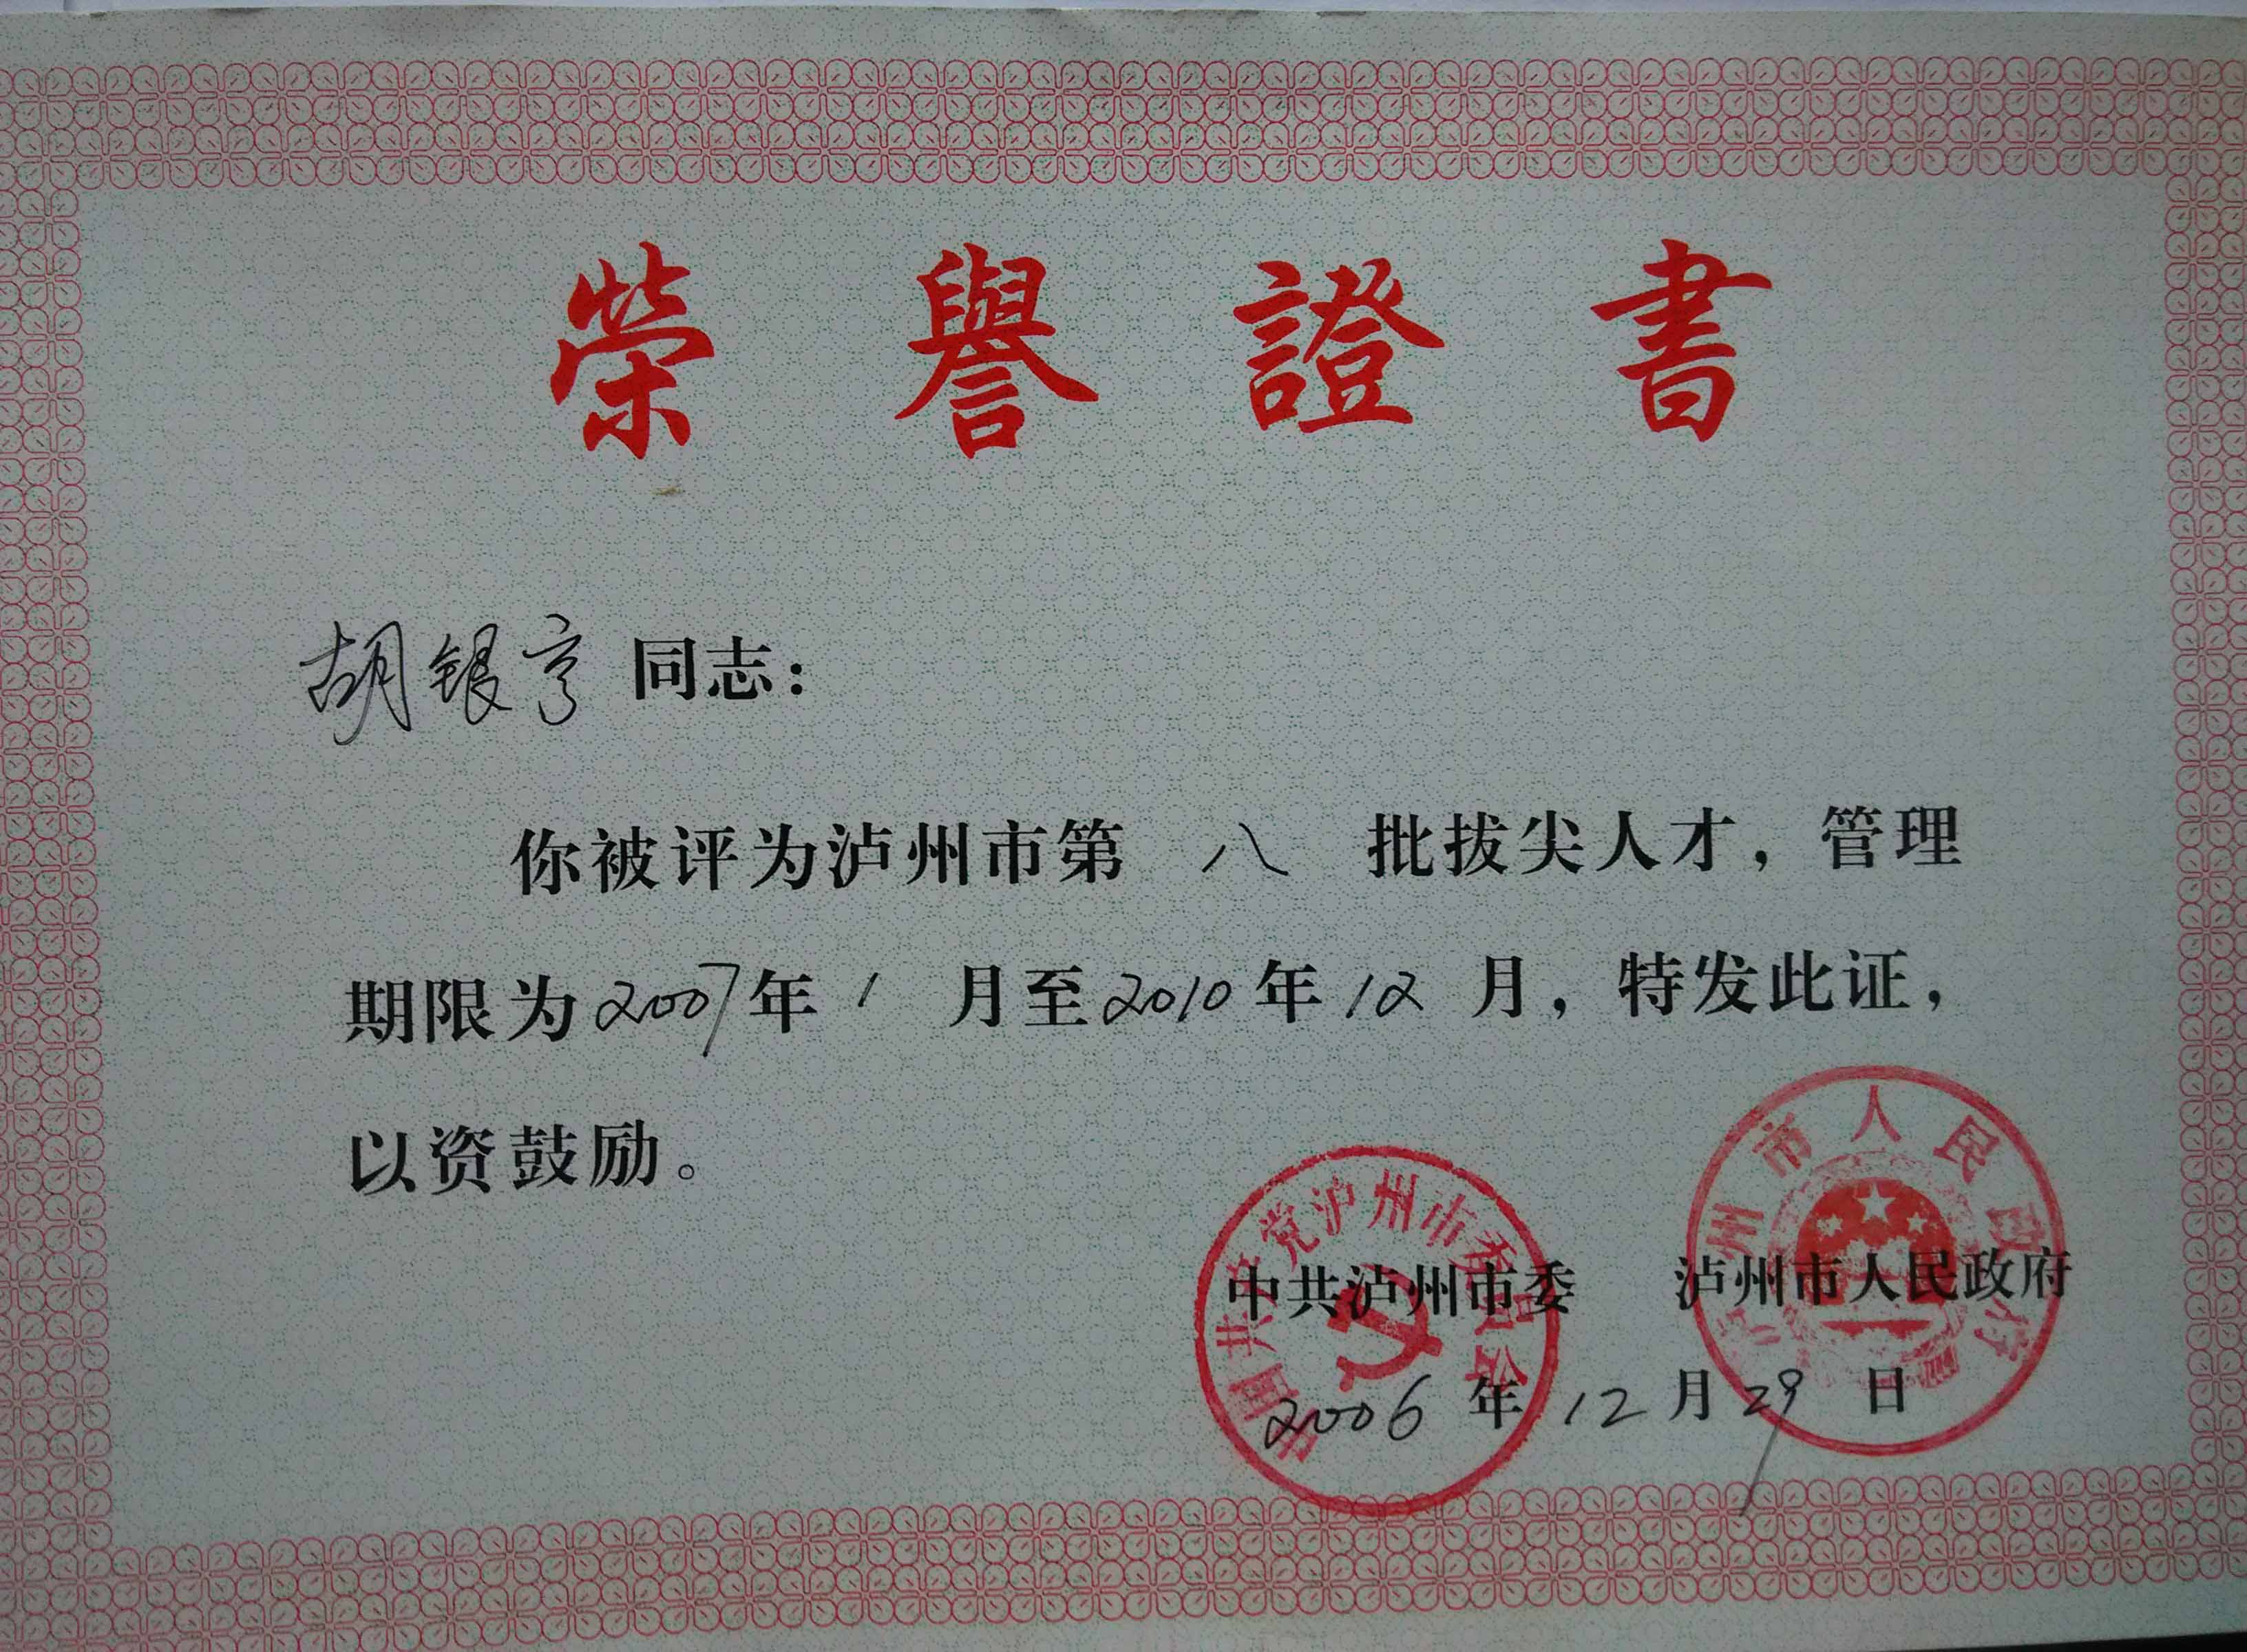 榮譽證書
胡银亨同志：
你被评为泸州市第 八 批拔尖人才，管理
期限为2007年1月至2010年12月，特发此证，
以资鼓励。
中共泸州市委 泸州市人民政府
2006年12月29日
中国共产党泸州市委员会
泸州市人民政府